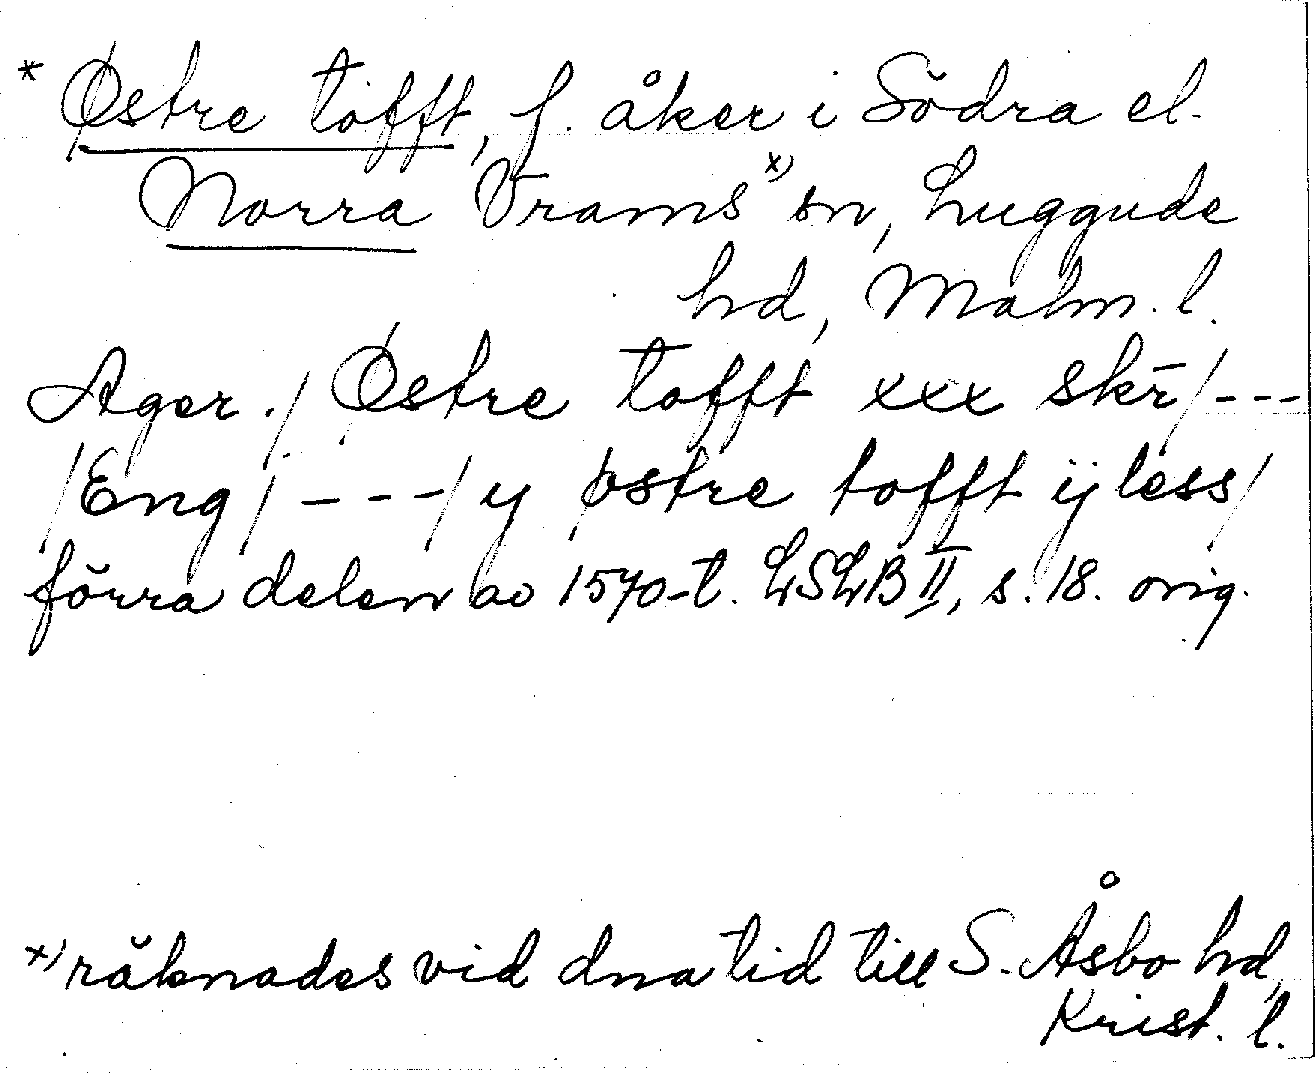 * Østre tofft, f. åker i Södra el.
Norra Vrams x) sn, Luggude
hd, Malm. l.
Ager. / Østre tofft xxx skr̄ / ---
/ Eng / --- / y østre tofft ij less /
förra delen av 1570-t. LSLB II, s. 18. orig.
x) räknades vid dna tid till S. Åsbo hd,
Krist. l.